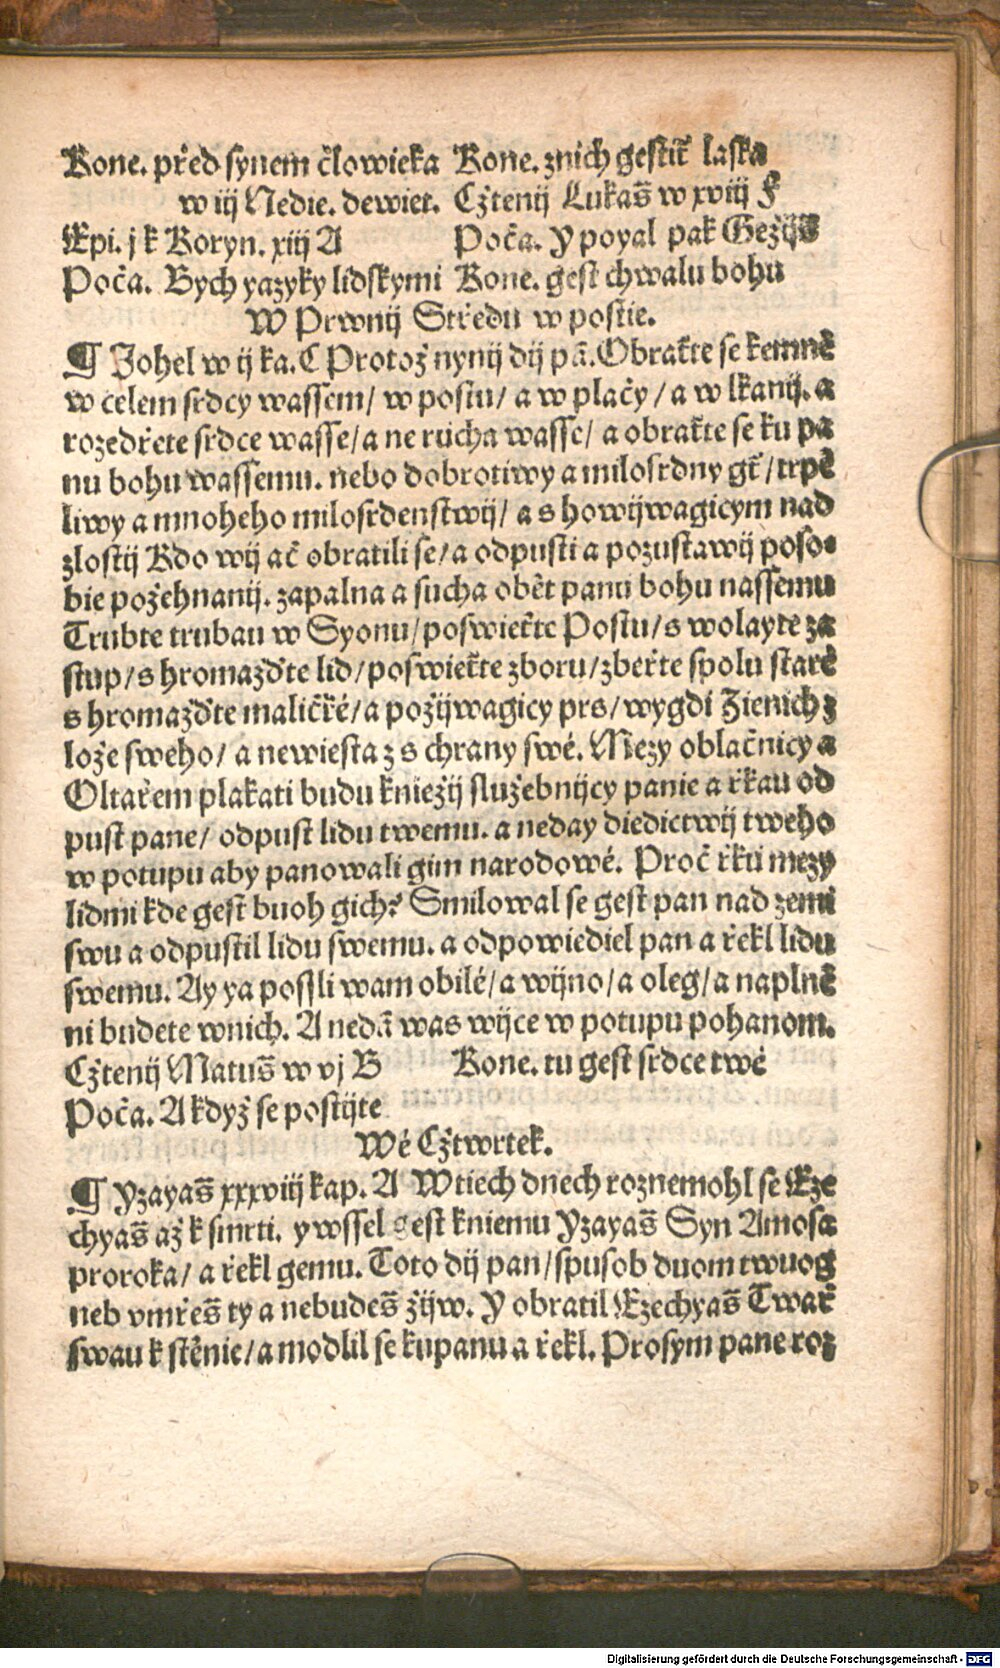 Kone. před synem člowieka Kone. znich gestiť laska
w iij Nedie. dewiet. Cžtenij Lukaš w xviij F
Epi. j k Koryn. xiij A Poča. Y poyal pak Gežijš
Poča. Bych yazyky lidskymi Kone. gest chwalu bohu
W Prwnij Středu w postie.
¶ Johel w ij ka. C Protož nynij dij pā. Obraťte se kemně
w celem srdcy wassem/ w postu/ a w plačy/ a w lkanij. a
rozedřete srdce wasse/ a ne rucha wasse/ a obraťte se ku pa
nu bohu wassemu. nebo dobrotiwy a milosrdny gť/ trpě
liwy a mnoheho milosrdenstwij/ a s howijwagicym nad
zlostij Kdo wij ač obratili se/ a odpusti a pozustawij poso
bie požehnanij. zapalna a sucha obět panu bohu nassemu
Trubte trubau w Syonu/ poswieťte Postu/ s wolayte za
stup/ s hromažďte lid/ poswieťte zboru/ zbeřte spolu staré
s hromažďte maličké/ a požijwagicy prs/ wygdi Zienich z
lože sweho/ a newiesta z s chrany swé. Mezy oblačnicy a
Oltařem plakati budu kniežij služebnijcy panie a řkau od
pust pane/ odpust lidu twemu. a neday diedictwij tweho
w potupu aby panowali gim narodowé. Proč řku mezy
lidmi kde gest buoh gich? Smilowal se gest pan nad zemi
swu a odpustil lidu swemu. a odpowiediel pan a řekl lidu
swemu. Ay ya possli wam obilé/ a wijno/ a oleg/ a naplně
ni budete wnich. A nedā was wijce w potupu pohanom.
Cžtenij Matuš w vj B Kone. tu gest srdce twé
Poča. A když se postijte
Wé Cžtwrtek.
¶ Yzayaš xxxviij kap. A W tiech dnech roznemohl se Eze
chyaš až k smrti. y wssel gest kniemu Yzayaš Syn Amosa
proroka/ a řekl gemu. Toto dij pan/ spusob duom twuog
neb vmřeš ty a nebudeš žijw. Y obratil Ezechyaš Twař
swau k stěnie/ a modlil se kupanu a řekl. Prosym pane roz
Digitalisierung gefördert durch die Deutsche Forschungsgemeinschaft - DFG